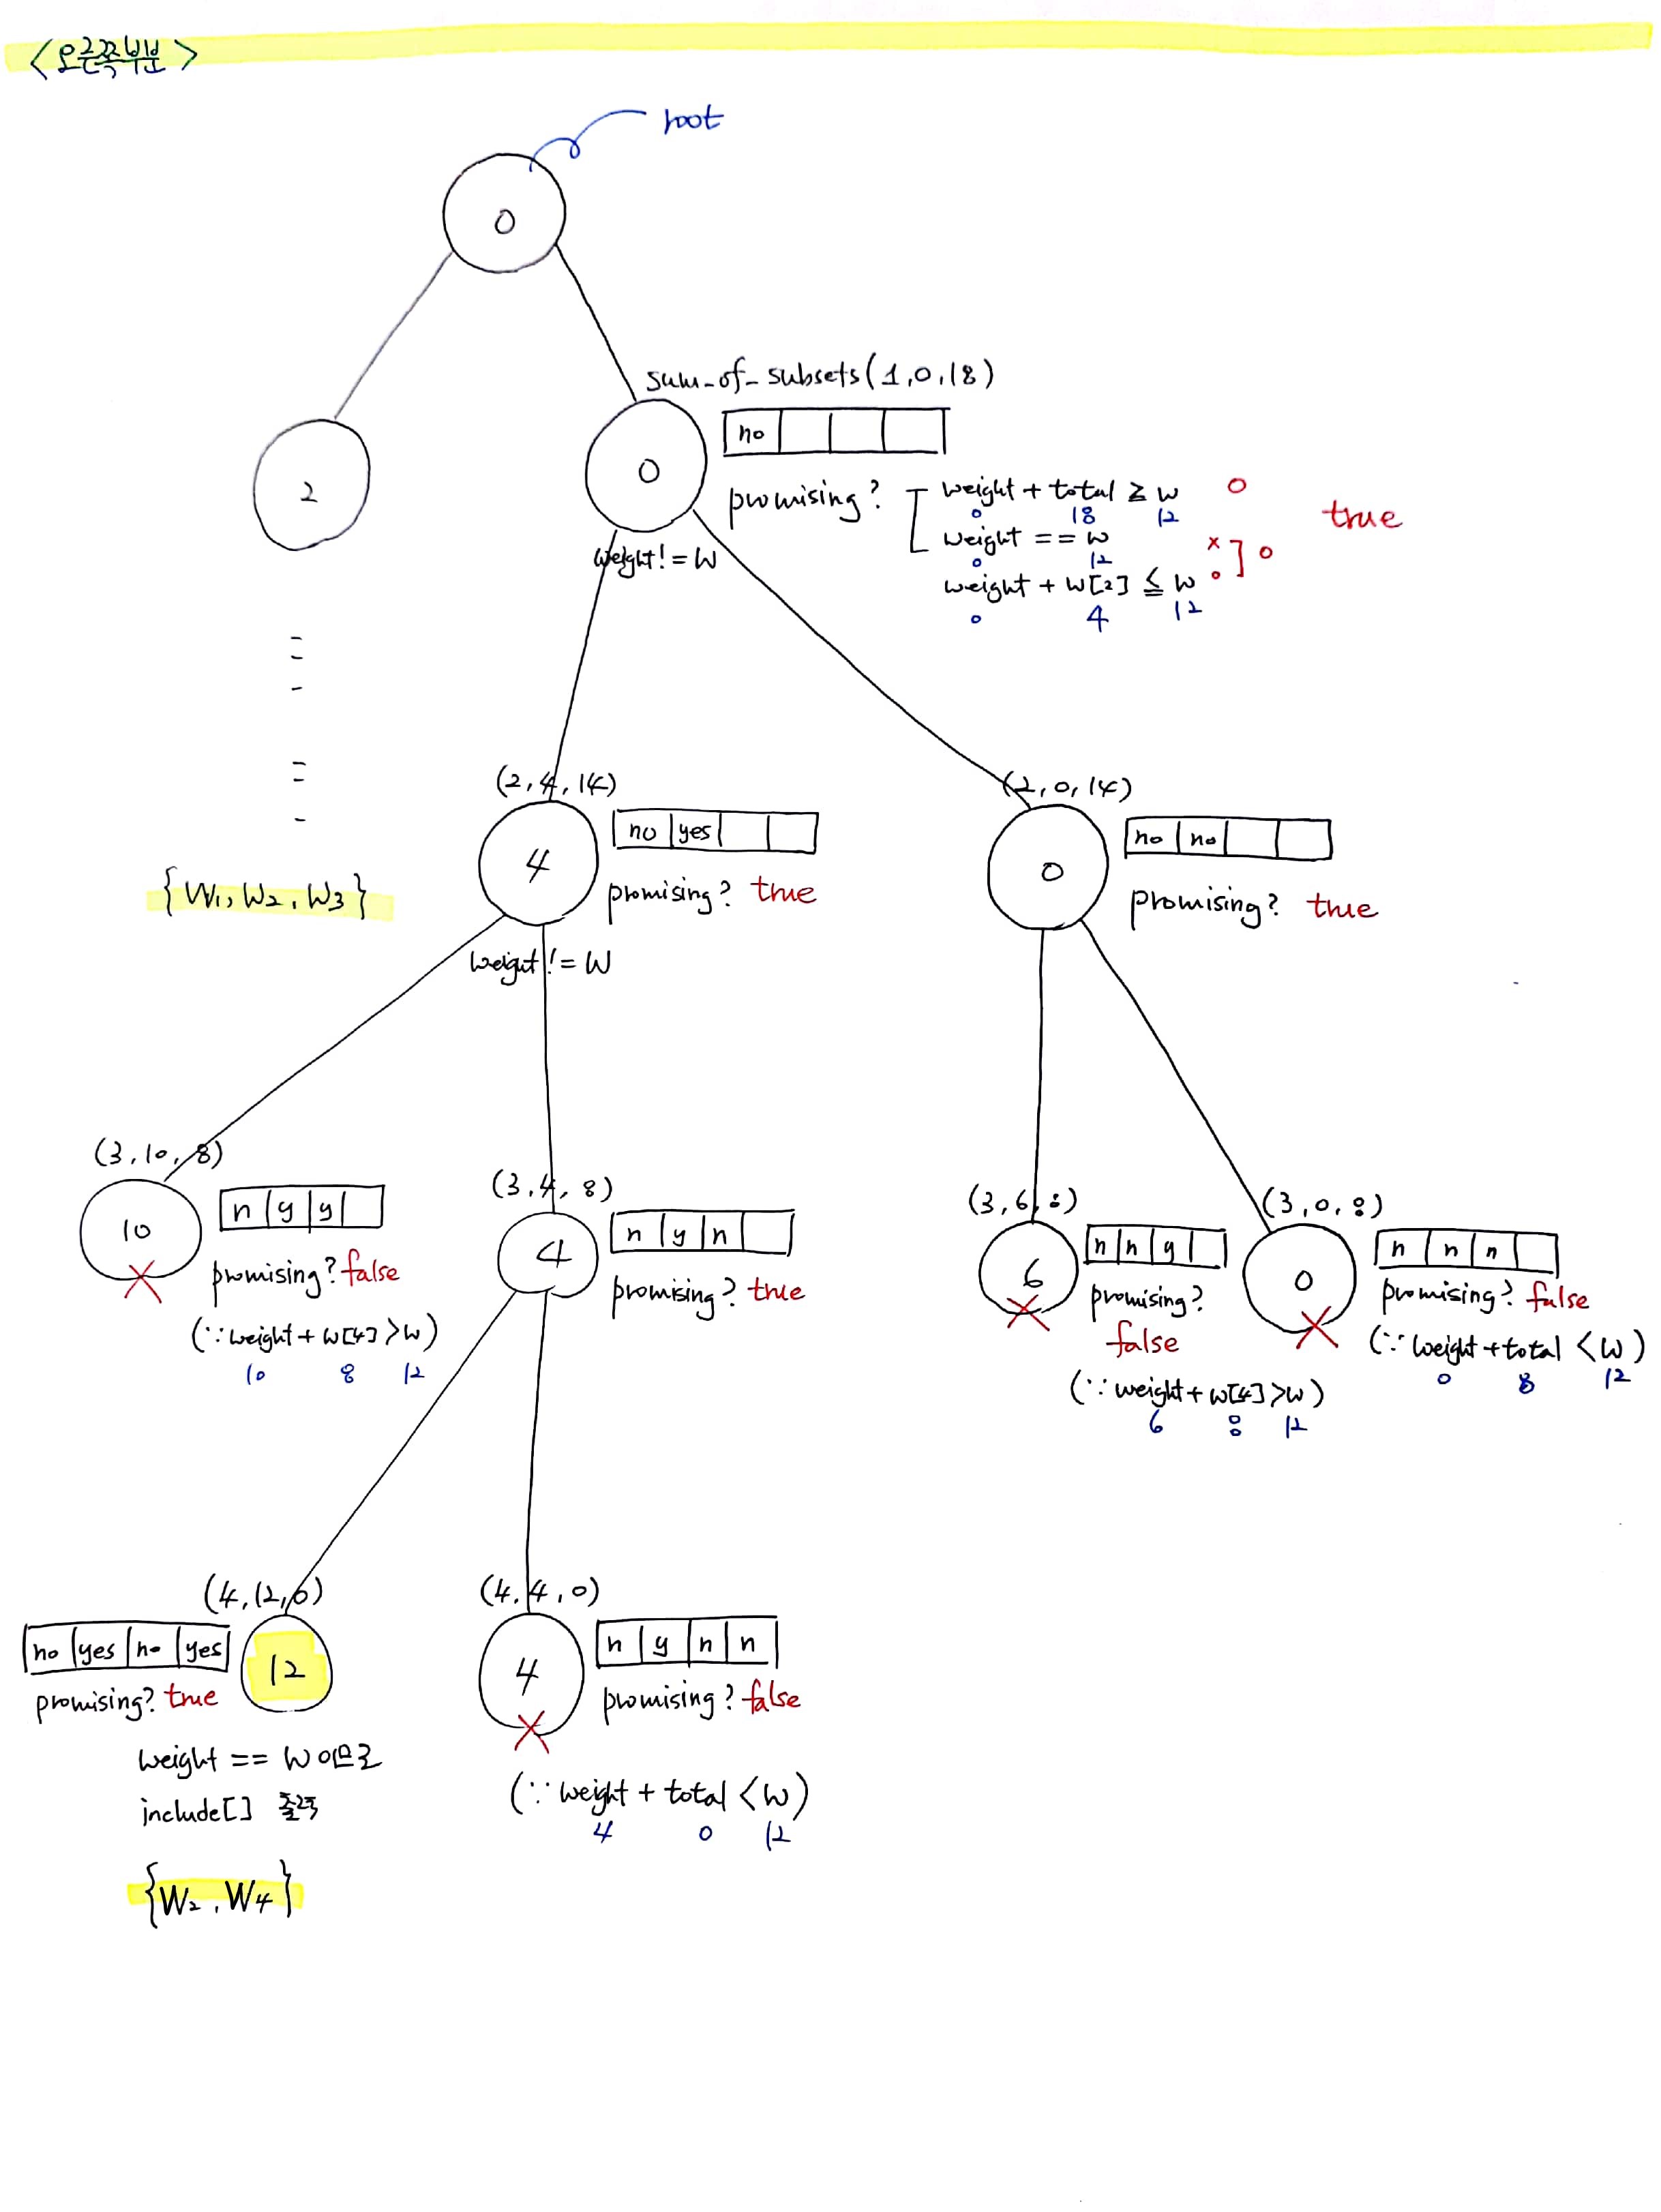 <오른쪽부분>
root
0
sum_of_subsets(1,0,18)
no
2
0
promising?
weight + total ≥ W
0 18 12
O
weight == W
0 12
x
weight + W[2] ≤ W
0 4 12
o
] o
true
weight != W
(2,4,14)
4
no yes
promising? true
weight != W
(2,0,14)
0
no no
promising? true
{W1, W2, W3}
(3,10,8)
10
n y y
promising? false
(∵ weight + W[4] > W)
10 8 12
(3,4,8)
4
n y n
promising? true
(3,6,8)
6
n n y
promising?
false
(∵ weight + W[4] > W)
6 8 12
(3,0,8)
0
n n n
promising? false
(∵ weight + total < W)
0 8 12
(4,12,0)
no yes no yes
12
promising? true
weight == W 이므로
include[] 출력
{W2, W4}
(4,4,0)
4
n y n n
promising? false
(∵ weight + total < W)
4 0 12